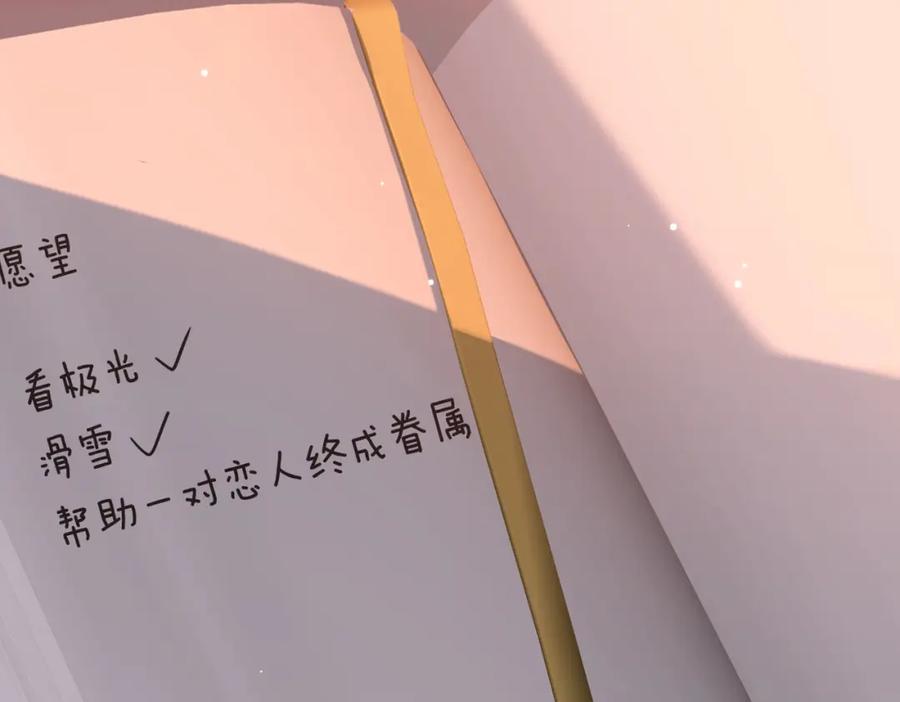 愿望
看极光 ✓
滑雪 ✓
帮助一对恋人终成眷属